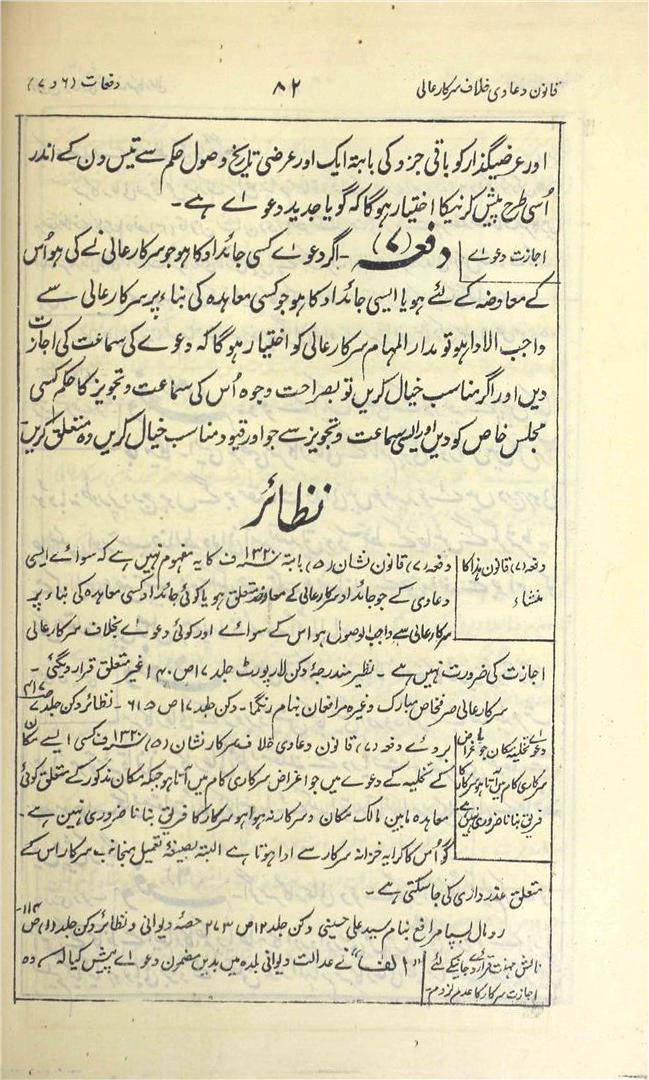 قانون دعاوی خلاف سرکار عالی
۸۲
دفعات (۶ و ۷)
اور عرضیگذار کو باقی جزو کی بابتہ ایک اور عرضی تاریخ وصول حکم سے تیس دن کے اندر
اُسی طرح پیش کرنیکا اختیار ہوگا کہ گویا جدید دعوے ہے ۔
اجازت دعوے
دفعہ (۷) ۔ اگر دعوے کسی جائداد کا ہو جو سرکار عالی نے لی ہو اُس
کے معاوضہ کے لئے ہو یا ایسی جائداد کا ہو جو کسی معاہدہ کی بناء پر سرکار عالی سے
واجب الادا ہو تو مدار المہام سرکار عالی کو اختیار ہوگا کہ دعوے کی سماعت کی اجازت
دیں اور اگر مناسب خیال کریں تو بصراحت وجوہ اُس کی سماعت و تجویز کا حکم کسی
مجلس خاص کو دیں اور ایسی سماعت و تجویز سے جو اور قیود مناسب خیال کریں وہ متعلق کریں
نظائر
دفعہ (۷) قانون ہذا کا
منشاء
دفعہ (۷) قانون نشان (۵) بابتہ ۱۳۲۰ ف کا یہ مفہوم نہیں ہے کہ سوائے ایسی
دعاوی کے جو جائداد سرکار عالی کے معاوضہ متعلق ہو یا کوئی جائداد کسی معاہدہ کی بناء پر
سرکار عالی سے واجب الوصول ہو اس کے سوائے اور کوئی دعوے بخلاف سرکار عالی
اجازت کی ضرورت نہیں ہے ۔ نظیر مندرجۂ دکن لارپورٹ جلد ۱۷ ص ۱۴۰ غیر متعلق قرار دیگئی ۔
سرکار عالی صرفخاص مبارک وغیرہ مرافعان بنام رنگما ۔ دکن جلد ۱۷ ص ۶۱۵ ۔ نظائر دکن جلد ۷
دعوے تخلیہ مکان جو اغراض
سرکاری کام میں آتا ہو سرکار کا
فریق بنانا ضروری نہیں ہے
بروئے دفعہ (۷) قانون دعاوی خلاف سرکار نشان (۵) ۱۳۲۰ ف کسی ایسے مکان
کے تخلیہ کے دعوے میں جو اغراض سرکاری کام میں آتا ہو جبکہ مکان مذکور کے متعلق کوئی
معاہدہ مابین مالک مکان و سرکار نہ ہوا ہو سرکار کا فریق بنانا ضروری نہیں ہے ۔
گو اُس کا کرایہ خزانہ سرکار سے ادا ہوتا ہے البتہ بصیغۂ تعمیل منجانب سرکار اس کے
متعلق عذرداری کی جاسکتی ہے ۔
مرافع بنام سید علی حسینی دکن جلد ۱۲ ص ۲۷۳ حصۂ دیوانی و نظائر دکن جلد (۱) ص ۱۱۴
نالش قرار دئے جانیکے لئے
اجازت سرکار کا عدم لزوم ۔
"الف" نے عدالت دیوانی بلدہ میں بدیں مضمون دعوے پیش کیا کہ وہ